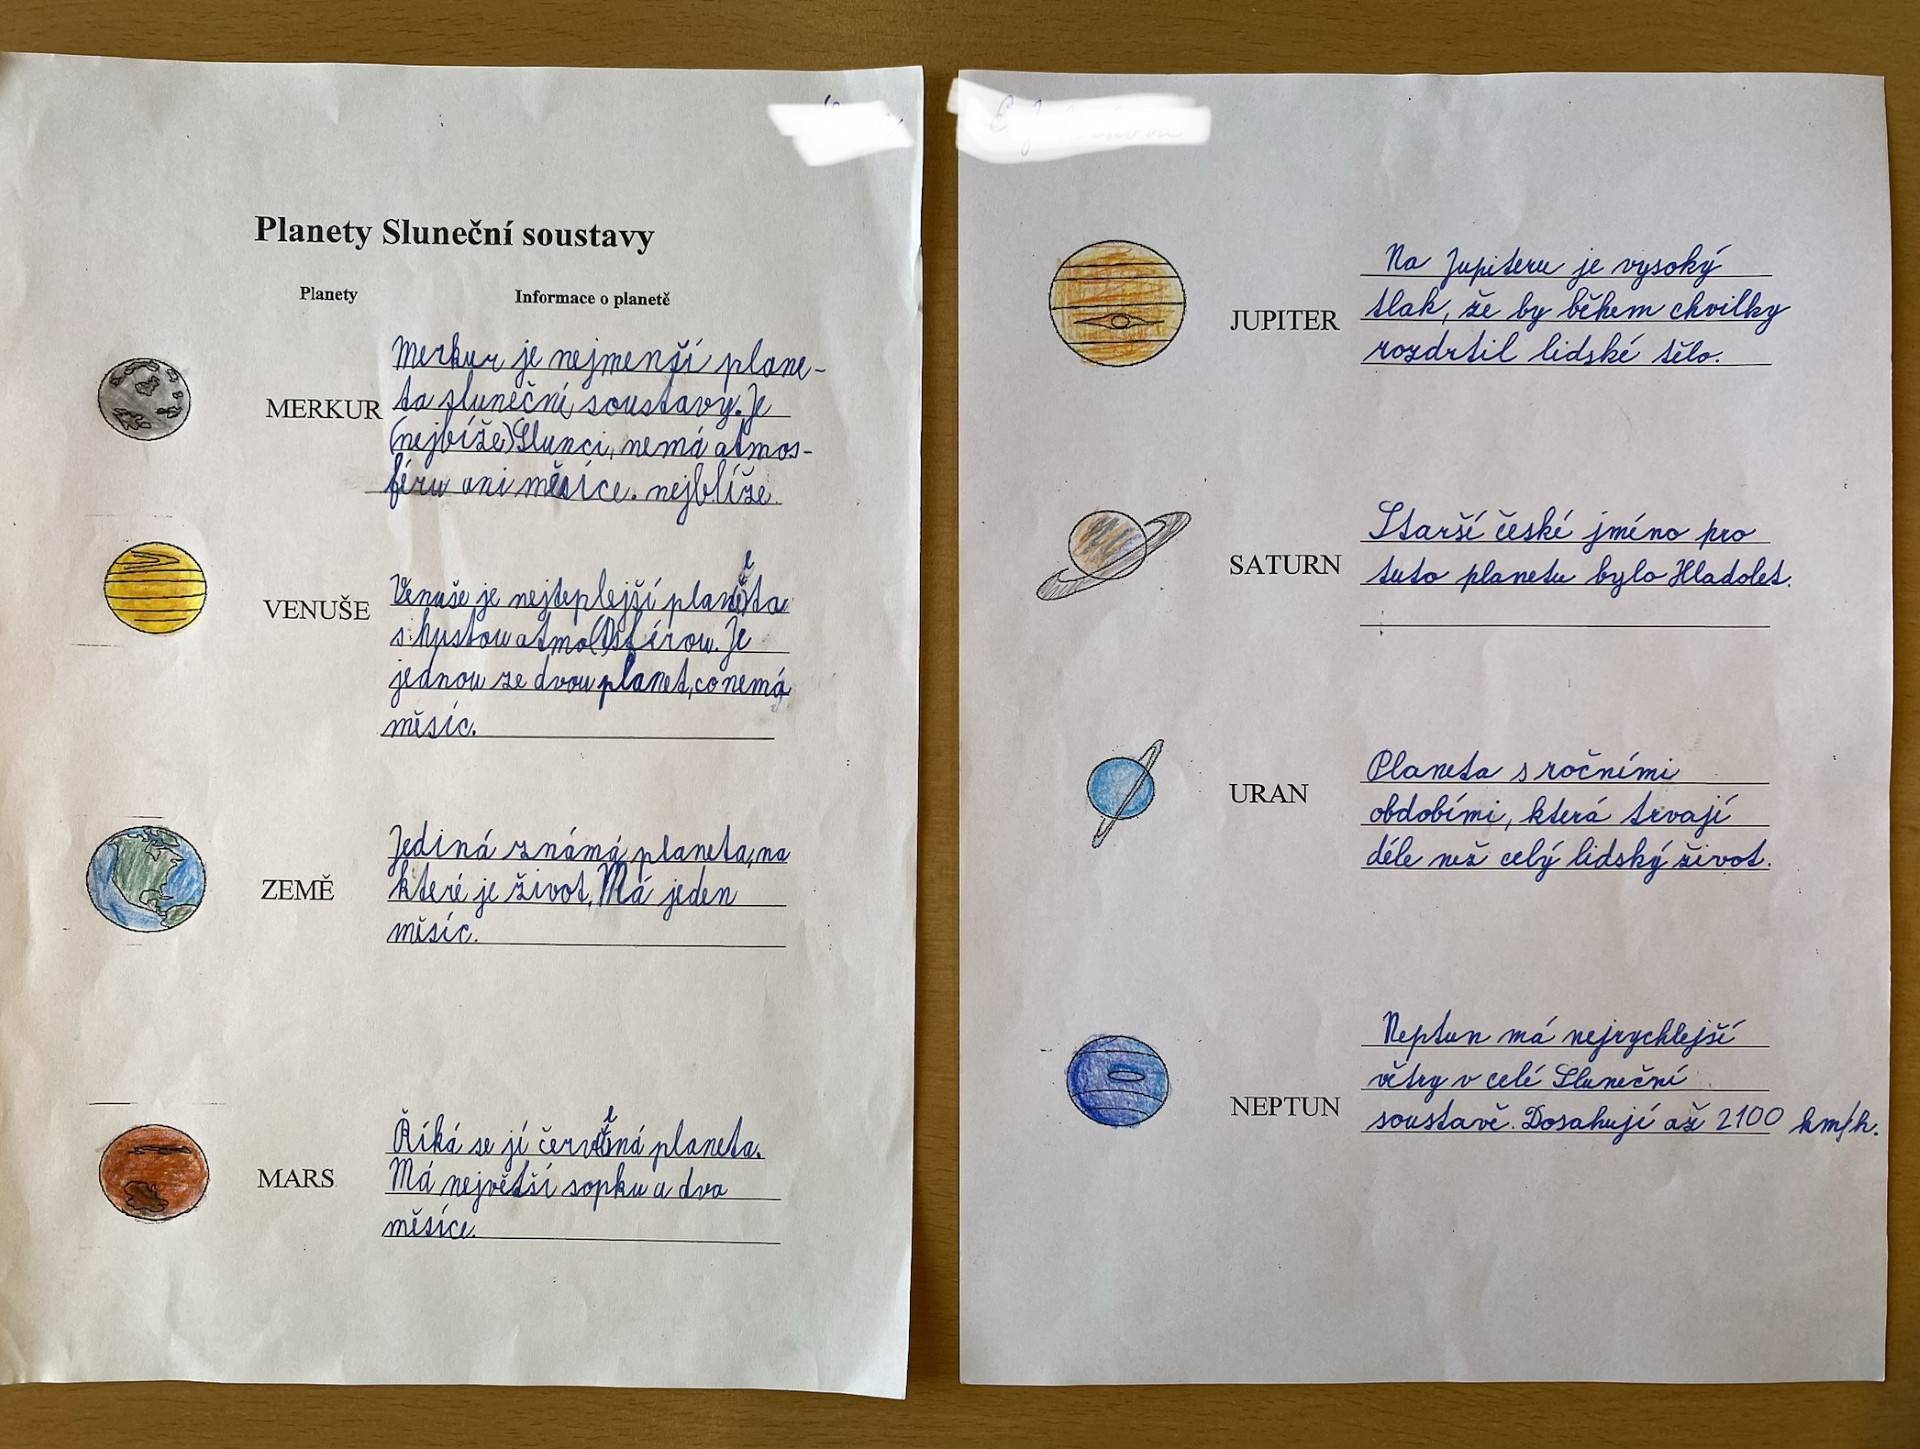 Planety Sluneční soustavy
Planety
Informace o planetě
MERKUR
Merkur je nejmenší plane-
ta sluneční soustavy. Je
(nejbíže) Slunci, nemá atmos-
féru ani měsíce. nejblíže.
VENUŠE
Venuše je nejteplejší planeta
s hustou atmo(s)sférou. Je
jednou ze dvou planet, co nemá
měsíc.
ZEMĚ
Jediná známá planeta, na
které je život. Má jeden
měsíc.
MARS
Říká se jí červená planeta.
Má největší sopku a dva
měsíce.
JUPITER
Na Jupiteru je vysoký
tlak, že by během chvilky
rozdrtil lidské tělo.
SATURN
Starší české jméno pro
tuto planetu bylo Hladolet.
URAN
Planeta s ročními
obdobími, která trvají
déle než celý lidský život.
NEPTUN
Neptun má nejrychlejší
větry v celé Sluneční
soustavě. Dosahují až 2100 km/h.